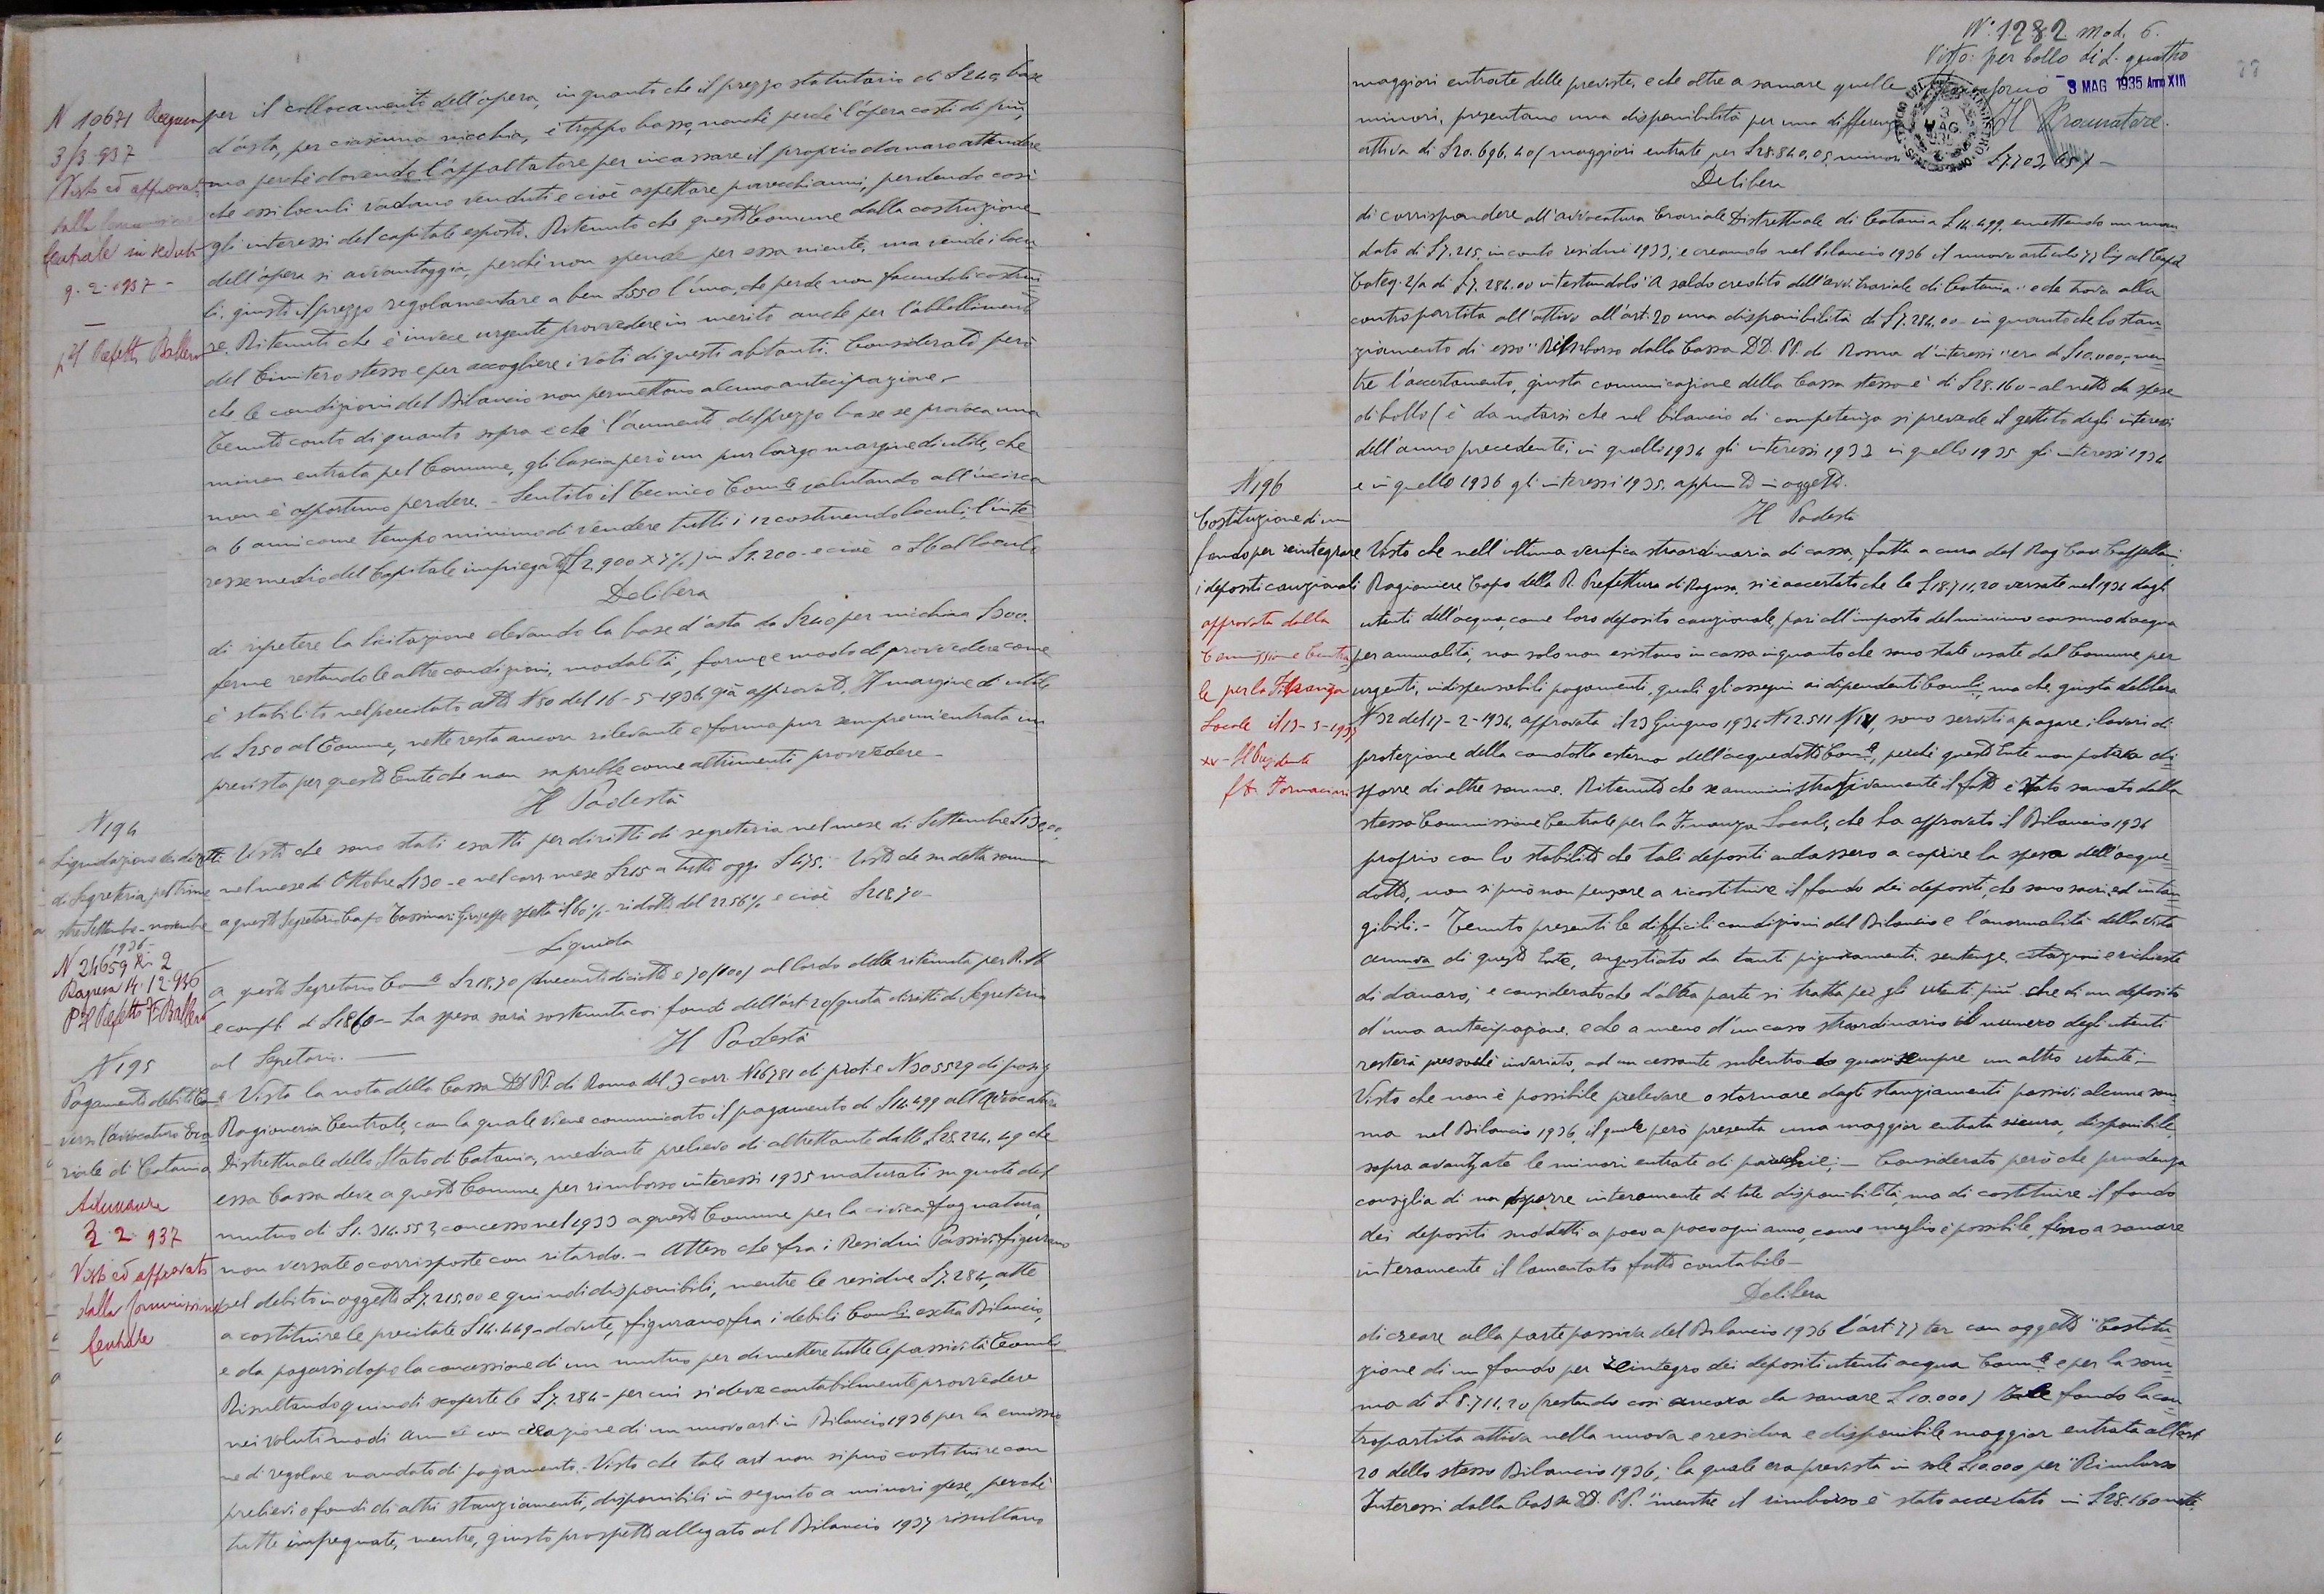 N 10671 Ragusa
3/3-937
Visto ed approvato
dalla Commissione
Centrale in seduta
9-2-1937-
p. Il Prefetto Ballero
per il collocamento dell'opera, in quanto che il prezzo statutario di £240, base
d'asta, per ciascuna nicchia, è troppo basso, nonchè perchè l'opera costi di più,
ma perchè dovendo l'appaltatore per incassare il proprio danaro attendere
che essi loculi vadano venduti e cioè aspettare parecchi anni, perdendo così
gli interessi del capitale esposto. Ritenuto che questo Comune dalla costruzione
dell'opera si avvantaggia, perchè non spende per essa niente, ma vende i locu
li, giusto il prezzo regolamentare a ben £550 l'uno, che perde non facendoli costrui
re. Ritenuto che è invece urgente provvedere in merito anche per l'abbellimento
del Cimitero stesso e per accogliere i voti di questi abitanti. Considerato però
che le condizioni del Bilancio non permettono alcuna anticipazione.
Tenuto conto di quanto sopra e che l'aumento del prezzo base se provoca una
minor entrata pel Comune, gli lascia però un pur largo margine di utile, che
non è opportuno perdere. - Sentito il Tecnico Comle valutando all'incirca
a 6 anni come tempo minimo di vendere tutti i 12 costruendo loculi, l'inte
resse medio del Capitale impiegato (£2.900 x 7%) in £1.200 - e cioè a £6 al loculo
Delibera
di ripetere la licitazione elevando la base d'asta da £240 per nicchia a £300.
ferme restando le altre condizioni, modalità, forme e modo di provvedere come
è stabilito nel precitato atto N 80 del 16-5-1936 già approvato. Il margine di utile
di £250 al Comune, nette resta ancora rilevante e forma pur sempre un'entrata im
prevista per questo Ente che non saprebbe come altrimenti provvedere -
Il Podestà
N 194
Liquidazione dei diritti
di Segreteria pel trime
stre Settembre-novembre
1936-
N 24659 Div 2
Ragusa 14-12-936
p. Il Prefetto F. Ballero
Visto che sono stati esatti per diritti di segreteria nel mese di Settembre £130,00,
nel mese di Ottobre £130 - e nel corr. mese £215 a tutt'oggi £475. - Visto che su detta somma
a questo Segretario Capo Cassinari Giuseppe spetta il 60% - ridotto del 22.56% e cioè £218,70 -
Liquida
a questo Segretario Comle £218,70 (duecentodiciotto e 70/100) al lordo della ritenuta per R. M
e compl. di £18,60 - La spesa sarà sostenuta coi fondi dell'art 20 (quota diritti di Segreteria
al Segretario. -
Il Podestà
N 195
Pagamento debito Comle
verso l'avvocatura Era
riale di Catania
Adunanza
3-2-937
Visto ed approvato
dalla Commissione
Centrale
Vista la nota della Cassa DD PP. di Roma del 3 corr. N 16781 di prot. e N 305529 di posiz
Ragioneria Centrale, con la quale viene comunicato il pagamento di £14.499 all'Avvocatura
Distrettuale dello Stato di Catania, mediante prelievo di altrettante dalle £28.224,49 che
essa Cassa deve a questo Comune per rimborso interessi 1935 maturati su quote del
mutuo di £1.314.552, concesso nel 1933 a questo Comune per la civica fognatura,
non versate o corrisposte con ritardo. - Atteso che fra i Residui Passivi figurano
pel debito in oggetto £7.215,00 e quindi disponibili, mentre le residue £7.284, atte
a costituire le precitate £14.499 dovute, figurano fra i debiti Comli extra Bilancio,
e da pagarsi dopo la concessione di un mutuo per dimettere tutte le passività Comli
Risultando quindi scoperte le £7.284 - per cui si deve contabilmente provvedere
nei voluti modi con creazione di un nuovo art. in Bilancio 1936 per la emissio
ne di regolare mandato di pagamento. - Visto che tale art. non si può costituire con
prelievi o fondi di altri stanziamenti, disponibili in seguito a minori spese, perchè
tutte impegnate, mentre, giusto prospetto allegato al Bilancio 1937 risultano
N° 1282 mod. 6.
Visto: per bollo di L. quattro
3 MAG 1935 Anno XIII
Il Procuratore
maggiori entrate delle previste, e che oltre a sanare quelle
minori, presentano una disponibilità per una differenza
attiva di £20.696,40 (maggiori entrate per £28.840,05, minori £7703,65) -
Delibera
di corrispondere all'avvocatura Erariale Distrettuale di Catania £14.499, emettendo un man
dato di £7.215, in conto residui 1933, e creando nel bilancio 1936 il nuovo articolo 77 bis al Cap 2
Categ. 2/a di £7.284.00 intestandolo "A saldo credito dell'avv. Erariale di Catania" e che trova alla
contropartita all'attivo all'art. 20 una disponibilità di £7.284,00 - in quanto che lo stan
ziamento di esso "Rimborso dalla Cassa DD. PP. di Roma d'interessi" era di £10.000, men
tre l'accertamento, giusta comunicazione della Cassa stessa è di £28.160 - al netto da spese
di bollo (è da notarsi che nel bilancio di competenza si prevede il gettito degli interessi
dell'anno precedente, in quello 1934 gli interessi 1933 in quello 1935 gli interessi 1934
e in quello 1936 gli interessi 1935, appunto in oggetto.
Il Podestà
N 196
Costituzione di un
fondo per reintegrare
i depositi cauzionali
approvata dalla
Commissione Centra
le per la Finanza
Locale il 13-3-1937
XV - Il Presidente
fto Fornaciari
Visto che nell'ultima verifica straordinaria di cassa, fatta a cura del Rag. Cav. Cappellani,
Ragioniere Capo della R. Prefettura di Ragusa, si è accertato che le £18.711,20 versate nel 1934 dagli
utenti dell'acqua, come loro deposito cauzionale, pari all'importo del minimo consumo d'acqua
per annualità, non solo non esistono in cassa in quanto che sono state usate dal Comune per
urgenti, indispensabili pagamenti, quali gli assegni ai dipendenti Comli, ma che, giusta delibera
N 32 del 17-2-1934, approvata il 23 Giugno 1934 N 12.511 , sono serviti a pagare i lavori di
protezione della condotta esterna dell'acquedotto Comle, perchè questo Ente non poteva di
sporre di altre somme. Ritenuto che se amministrativamente il fatto è stato sanato dalla
stessa Commissione Centrale per la Finanza Locale, che ha approvato il Bilancio 1936
proprio con lo stabilito che tali depositi andassero a coprire la spesa dell'acque
dotto, non si può non pensare a ricostituire il fondo dei depositi, che sono sacri ed intan
gibili. - Tenuto presenti le difficili condizioni del Bilancio e l'anormalità della vita
di questo Ente, angustiato da tanti pignoramenti, sentenze, citazioni e richieste
di danaro; e considerato che d'altra parte si tratta per gli utenti più che di un deposito
d'una anticipazione, e che a meno d'un caso straordinario il numero degli utenti
resterà pressochè invariato, ad un cessante subentrando quasi sempre un altro utente; -
Visto che non è possibile prelevare o stornare dagli stanziamenti passivi alcuna som
ma nel Bilancio 1936, il quale però presenta una maggior entrata sicura, disponibile,
sopra avanzate le minori entrate di parecchie; - Considerato però che prudenza
consiglia di non disporre interamente di tale disponibilità, ma di costituire il fondo
dei depositi suddetti a poco a poco ogni anno, come meglio è possibile, fino a sanare
interamente il lamentato fatto contabile -
Delibera
di creare alla parte passiva del Bilancio 1936 l'art. 77 ter con oggetto "Costitu
zione di un fondo per reintegro dei depositi utenti acqua Comle e per la som
ma di £8.711,20 (restando così ancora da sanare £10.000) Tale fondo la con
tropartita attiva nella nuova e residua e disponibile maggior entrata all'art
20 dello stesso Bilancio 1936; la quale era prevista in sole £10.000 per "Rimborso
Interessi dalla Cassa DD. PP." mentre il rimborso è stato accertato in £28.160 nette.